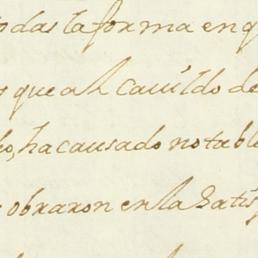 todas la forma en q
s que al Cauildo de
ho, ha causado notabl
obraron en la Satis